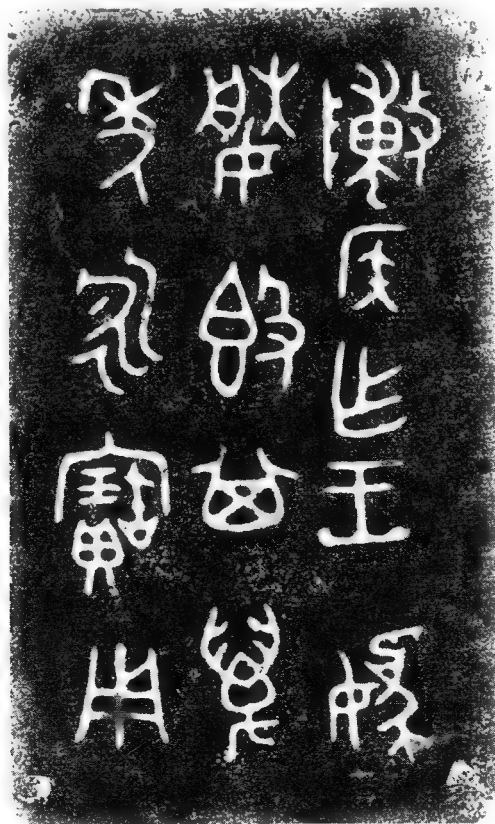 敶侯乍王媯
媵𣪘其萬
年永寶用